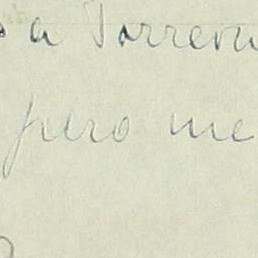 a Torreon
pero me